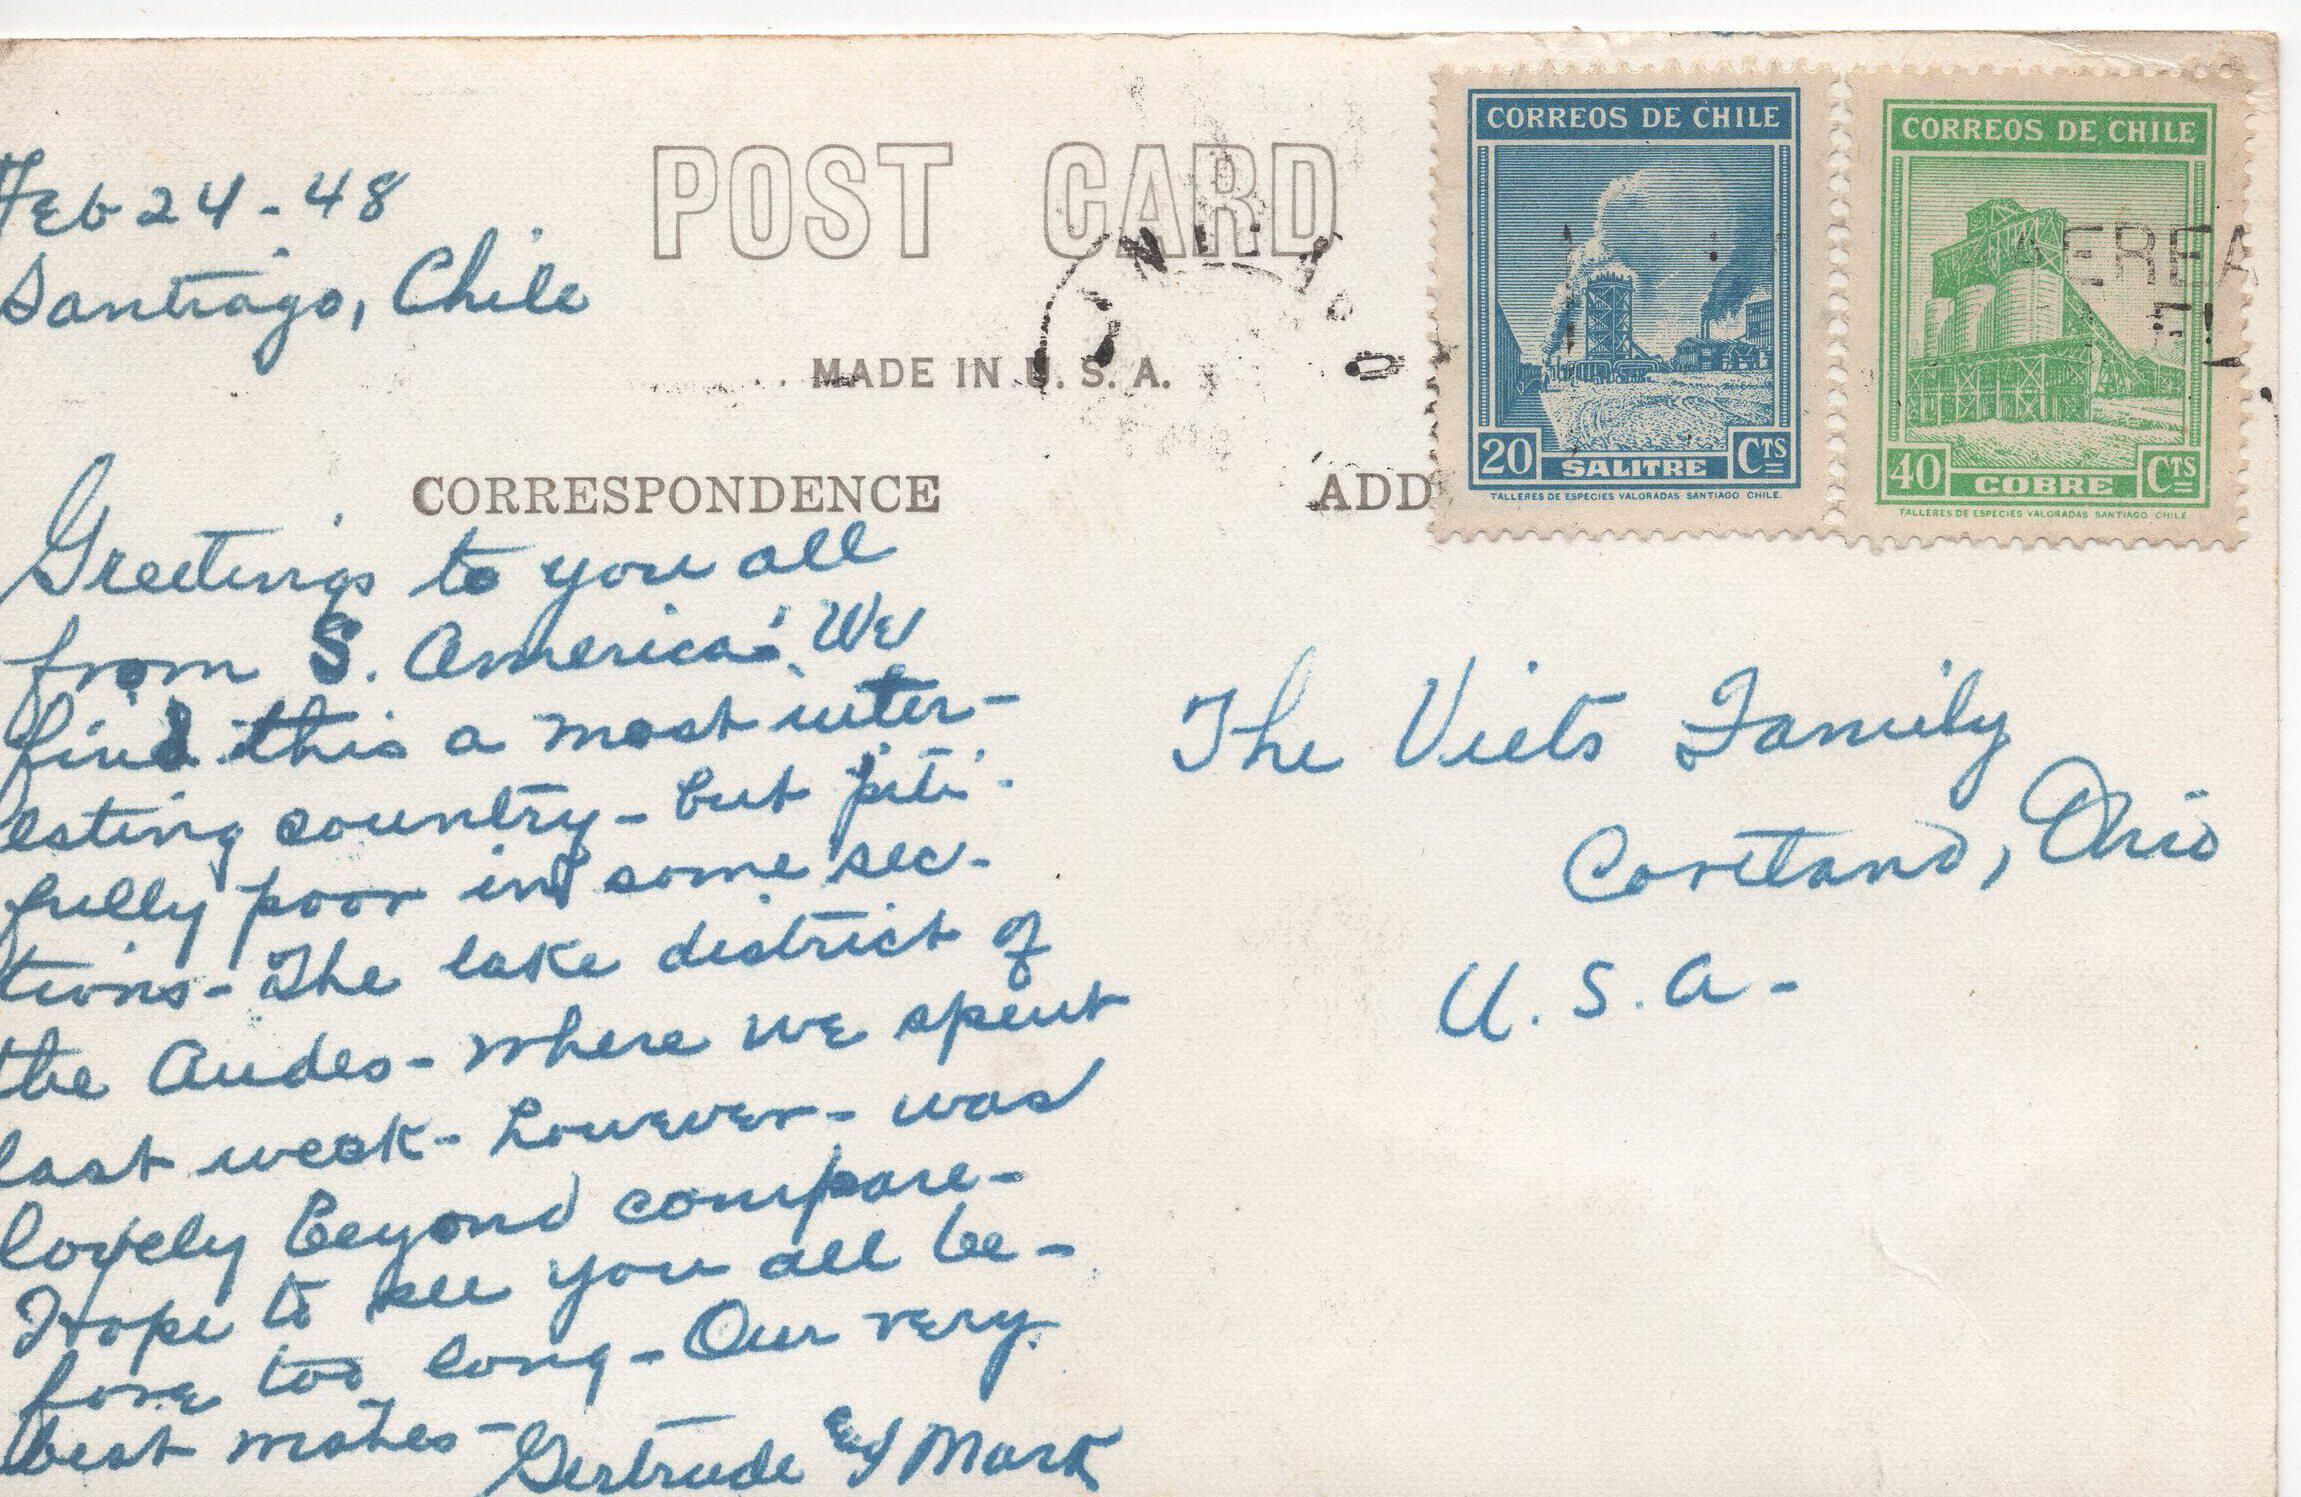 Feb 24-48
Santiago, Chile
POST CARD
MADE IN U.S.A.
CORRESPONDENCE
ADD
CORREOS DE CHILE
20 SALITRE CTS
TALLERES DE ESPECIES VALORADAS SANTIAGO CHILE.
CORREOS DE CHILE
40 COBRE CTS
TALLERES DE ESPECIES VALORADAS SANTIAGO CHILE
AEREA
Greetings to you all
from S. America. We
find this a most inter-
esting country - but piti-
fully poor in some sec-
tions - The lake district of
the Andes - where we spent
last week - however - was
lovely beyond compare -
Hope to see you all be-
fore too long - Our very
best wishes -
Gertrude & Mark
The Viets Family
Cortland, Ohio
U.S.A -